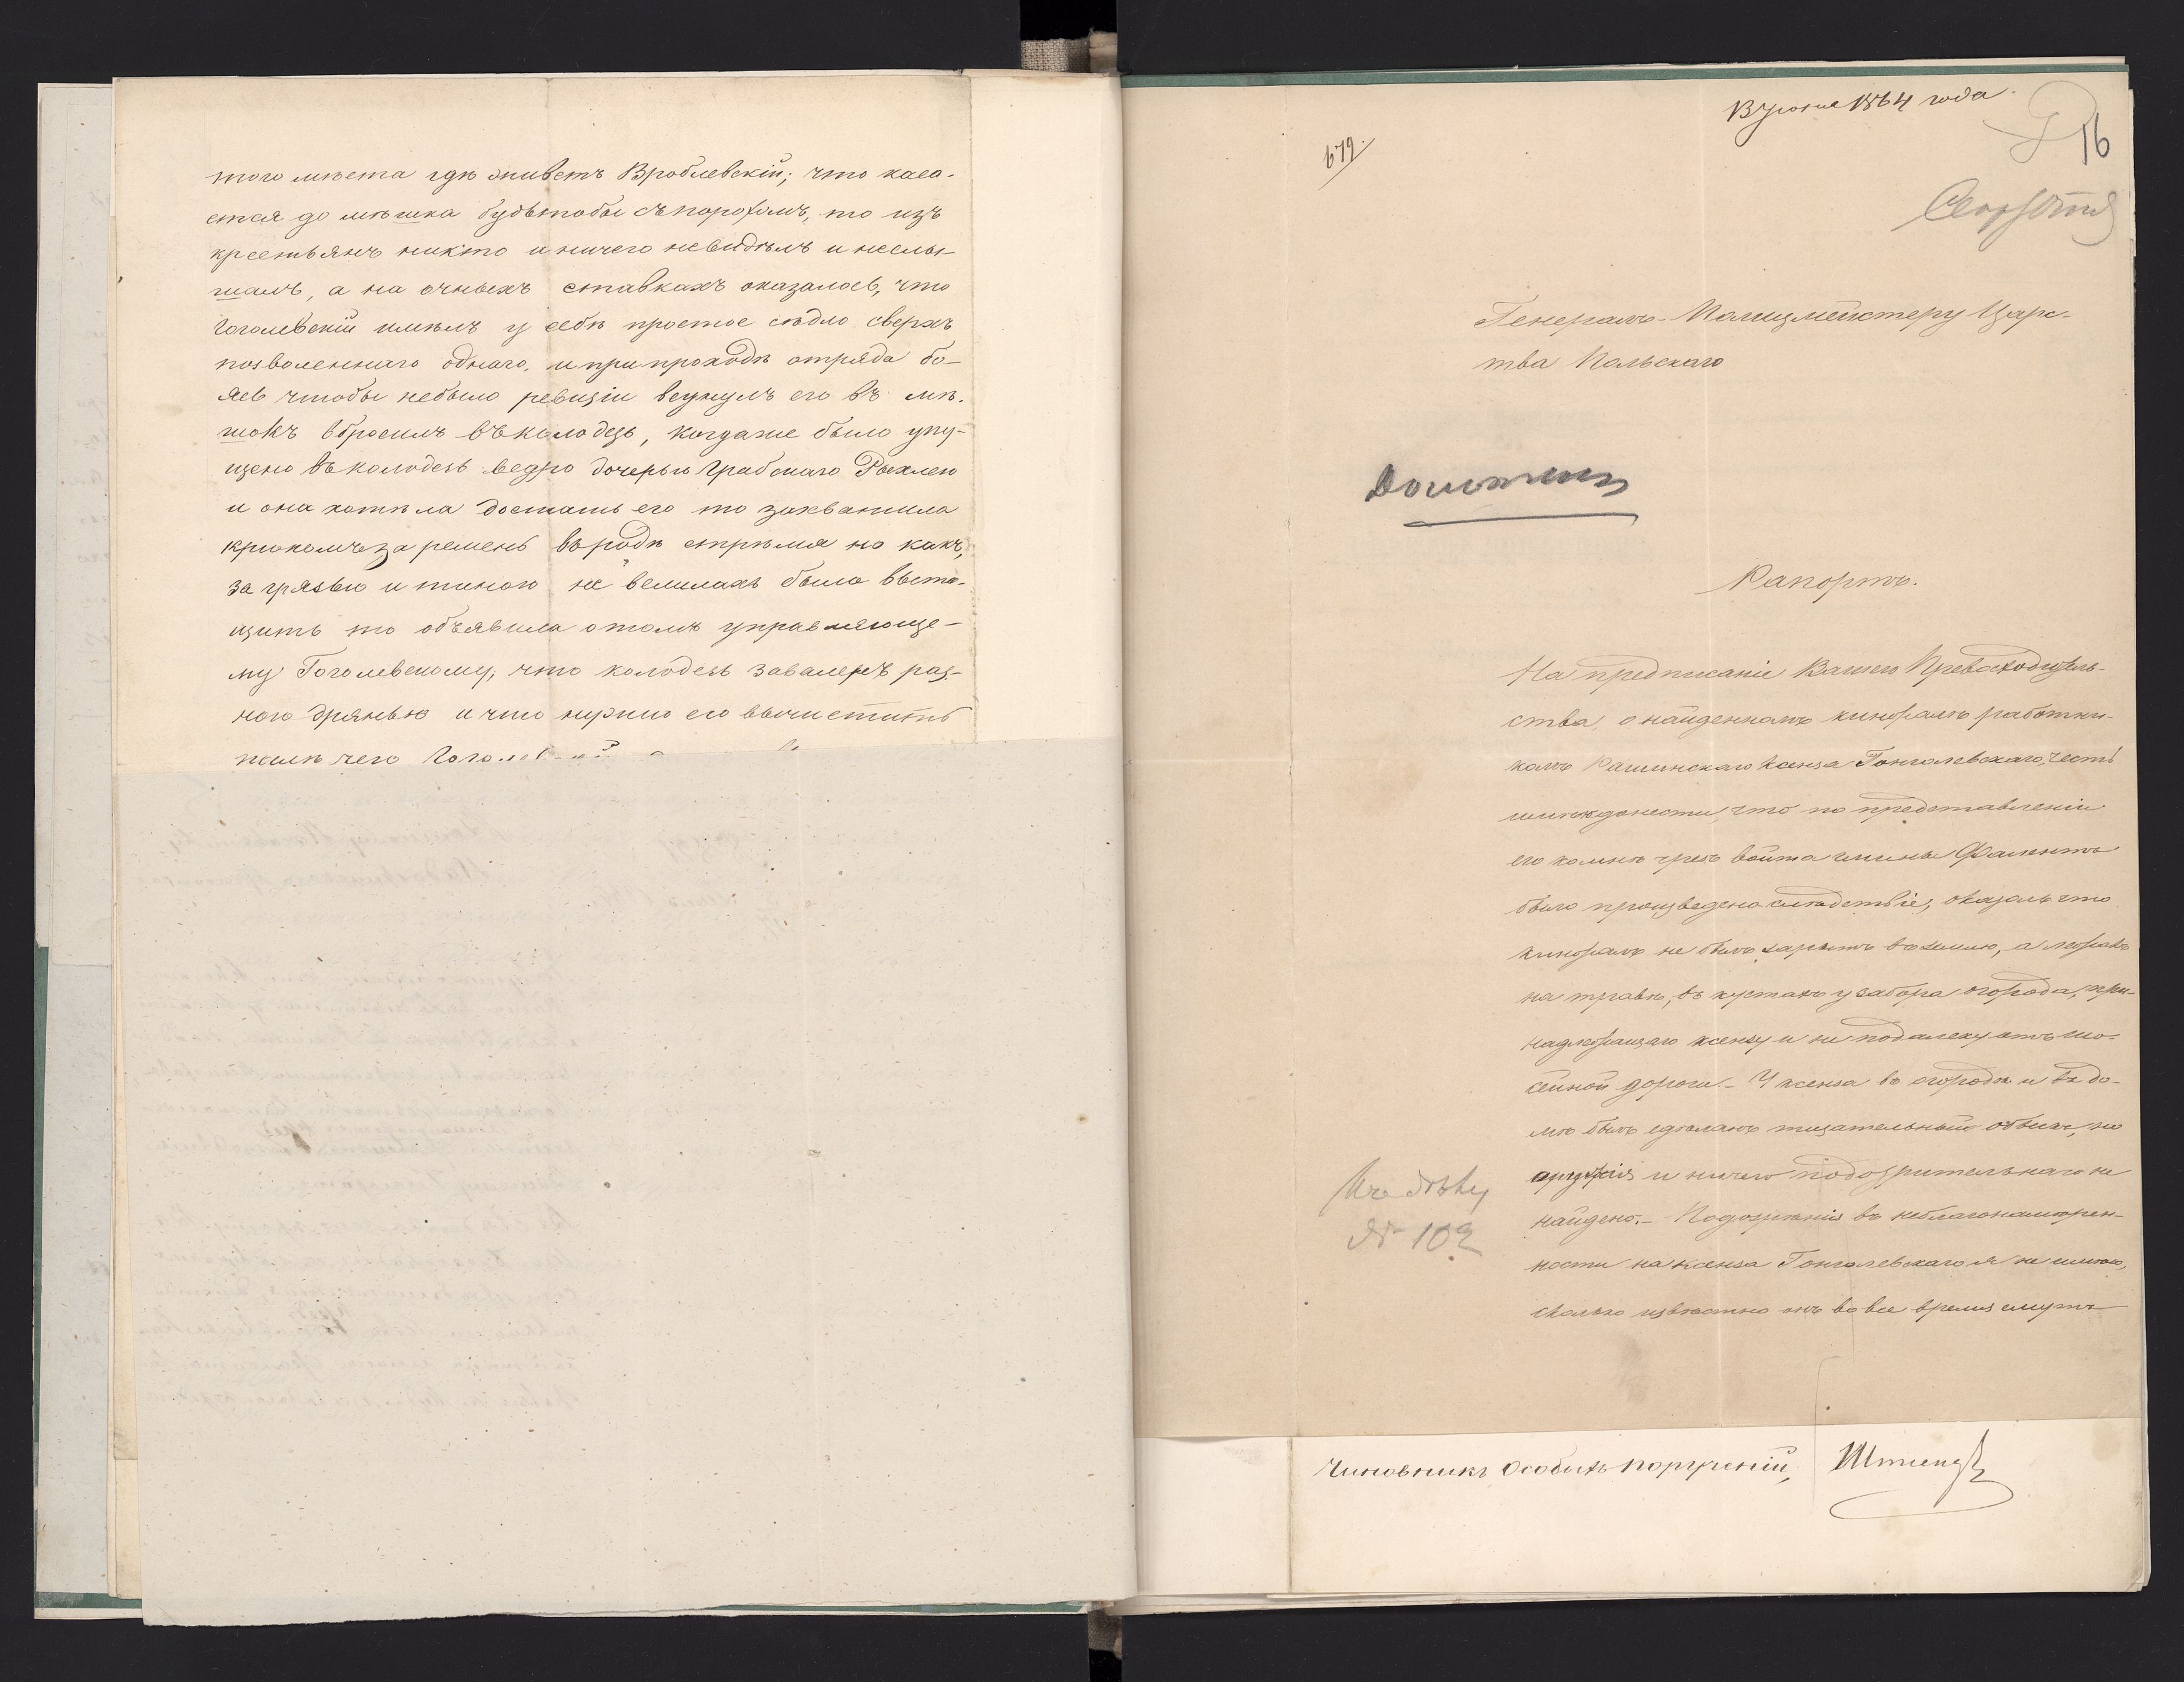 того мѣста гдѣ живетъ Вроблевскій; что каса-
ется до мѣшка будьтобы съ порохомъ, то изъ
крестьянъ никто и ничего невидѣлъ и неслы-
шалъ, а на очныхъ ставкахъ оказалось, что
Гоголевскій имѣлъ у себя простое сѣдло сверхъ
позволеннаго однаго, и при проходѣ отряда бо-
ясь чтобы небыло ревизіи всунулъ его въ мѣ-
шокъ вбросилъ въ колодезь, когда же было упу-
щено въ колодезь ведро дочерью Грабскаго Рохлею
и она хотѣла достать его то захватила
крюкомъ за ремень въ родѣ стрѣмя но какъ,
за грязью и тиною не было выта-
щить то объявила о томъ управляюще-
му Гоголевскому, что колодезь заваленъ раз-
ною дрянью и что нужно его вычистить
послѣ чего
13 Іюня 1864 года.
16
679.
Генералъ-Полицмейстеру Царс-
тва Польскаго
Рапортъ.
На предписаніе Вашего Превосходитель-
ства, о найденномъ кинжалѣ работни-
комъ Рашинскаго ксенза Гонголевскаго, честь
имѣю донести, что по представленіи
его ко мнѣ чрезъ войта гмины Фаленты
было произведено слѣдствіе, оказалось что
кинжалъ не былъ зарытъ въ землю, а лежалъ
на травѣ, въ кустахъ у забора огорода, при-
надлежащаго ксензу и не подалеку отъ шо-
сейной дороги. - У ксенза въ огородѣ и въ до-
мѣ былъ сдѣланъ тщательный обыскъ, но
оружія и ничего подозрительнаго не
найдено. - Подозрѣнія въ неблагонамѣрен-
ности на ксенза Гонголевскаго я не имѣю,
сколько извѣстно онъ во все время смутъ
№ 102
Чиновникъ Особыхъ порученій,